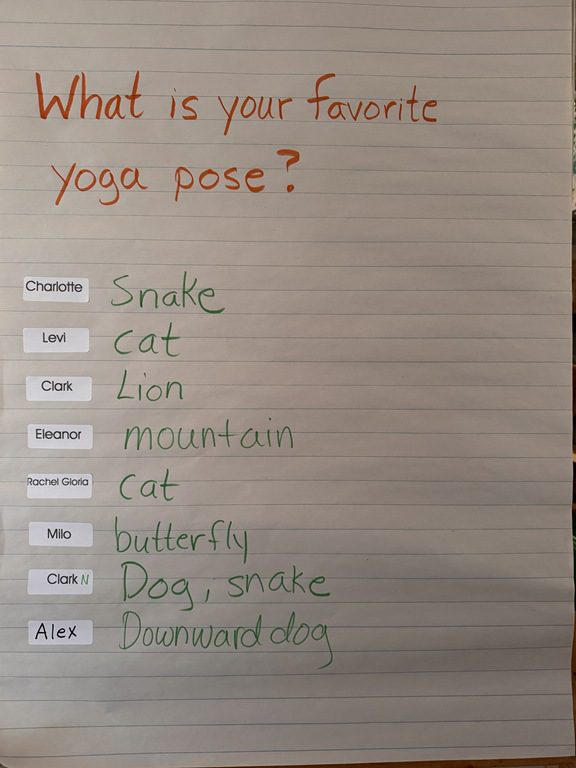 What is your favorite
yoga pose?
Charlotte Snake
Levi cat
Clark Lion
Eleanor mountain
Rachel Gloria cat
Milo butterfly
Clark N Dog, snake
Alex Downward dog